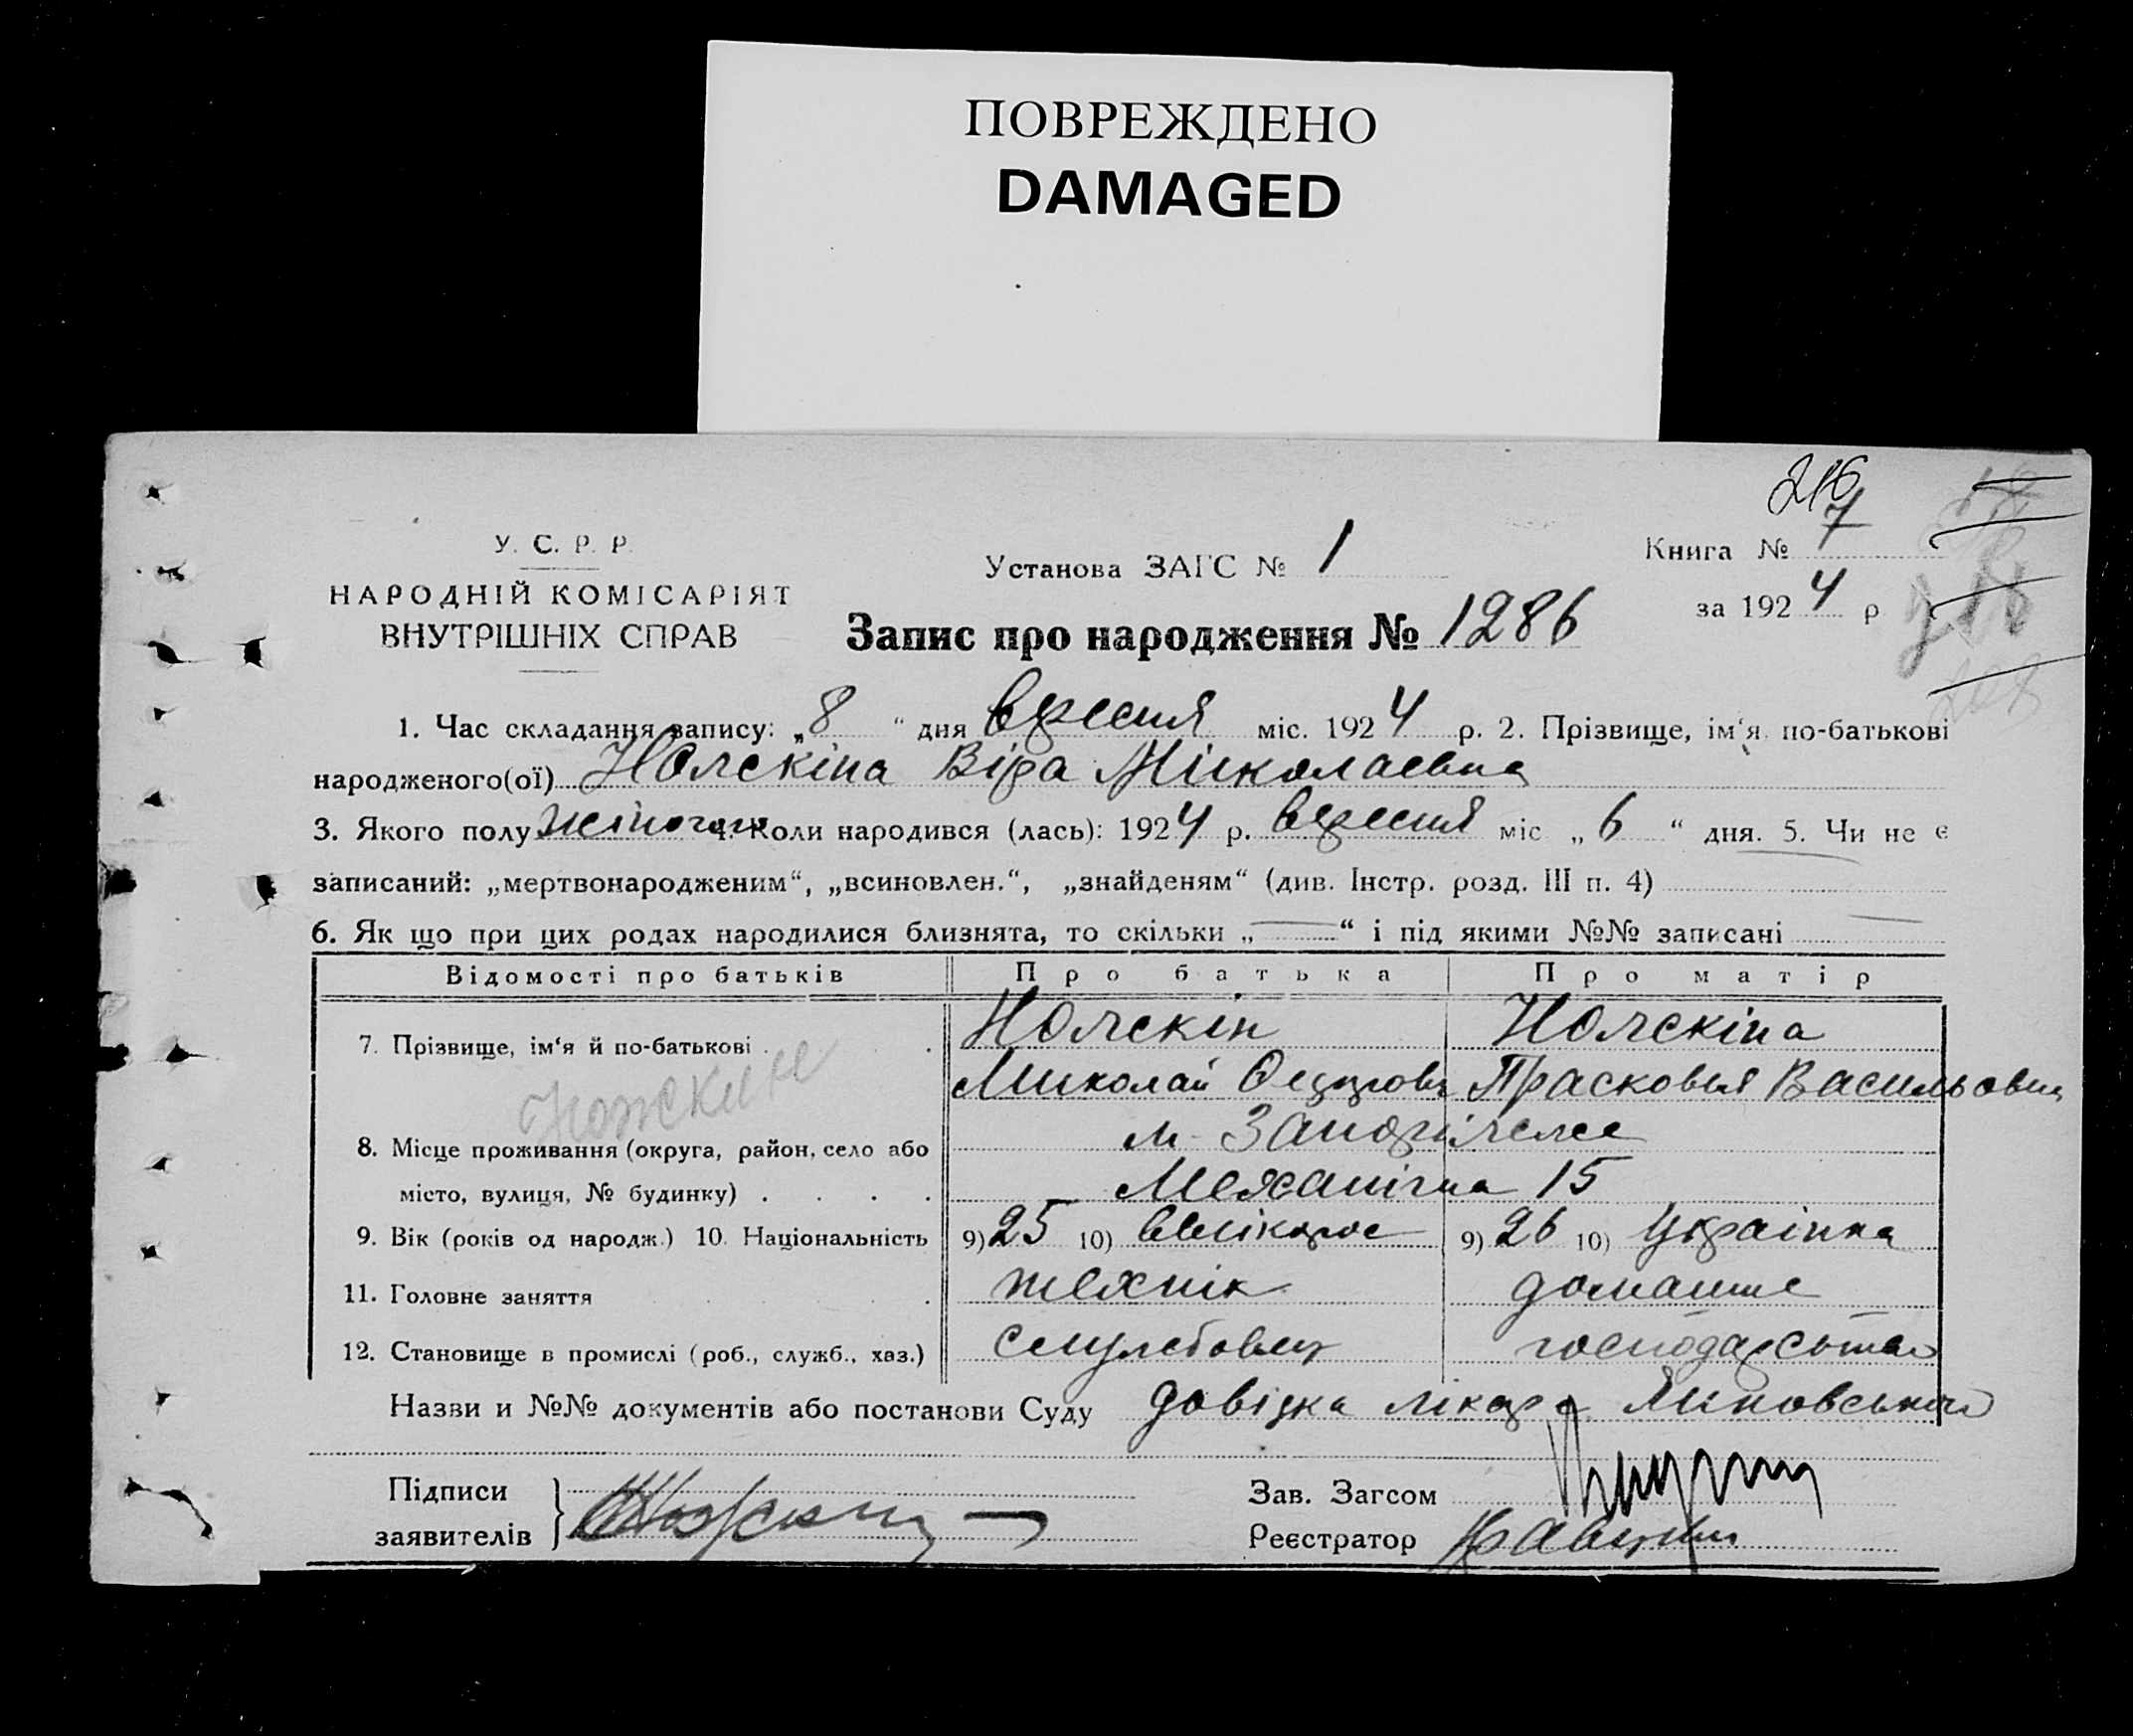 ПОВРЕЖДЕНО
DAMAGED
216
7
У. С. Р. Р.
НАРОДНІЙ КОМІСАРІЯТ
ВНУТРІШНІХ СПРАВ
Установа ЗАГС № 1
Книга №
за 1924 р
Запис про народження № 1286
1. Час складання запису: „8“ дня вересня міс. 1924 р. 2. Прізвище, ім‘я по-батькові
народженого(ої) Ножскіна Віра Миколаевна
3. Якого полу жіночого 4. Коли народився (лась): 1924 р. вересня міс „6“ дня. 5. Чи не є
записаний: „мертвонародженим“, „всиновлен.“, „знайденям“ (див. Інстр. розд. III п. 4)
6. Як що при цих родах народилися близнята, то скільки „—“ і під якими №№ записані —
Відомості про батьків Про батька Про матір
7. Прізвище, ім‘я й по-батькові Ножскін Ножскіна
Миколай Прасковья Васильовна
Ножкин
8. Місце проживання (округа, район, село або м. Запоріжже
місто, вулиця, № будинку) Механічна 15
9. Вік (років од народж.) 10. Національність 9) 25 10) велікорос 9) 26 10) Українка
11. Головне заняття технік домашне
12. Становище в промислі (роб., служб., хаз.) службовец господарство
Назви и №№ документів або постанови Суду довідка лікаря Яновського
Підписи
заявителів
Зав. Загсом
Реєстратор